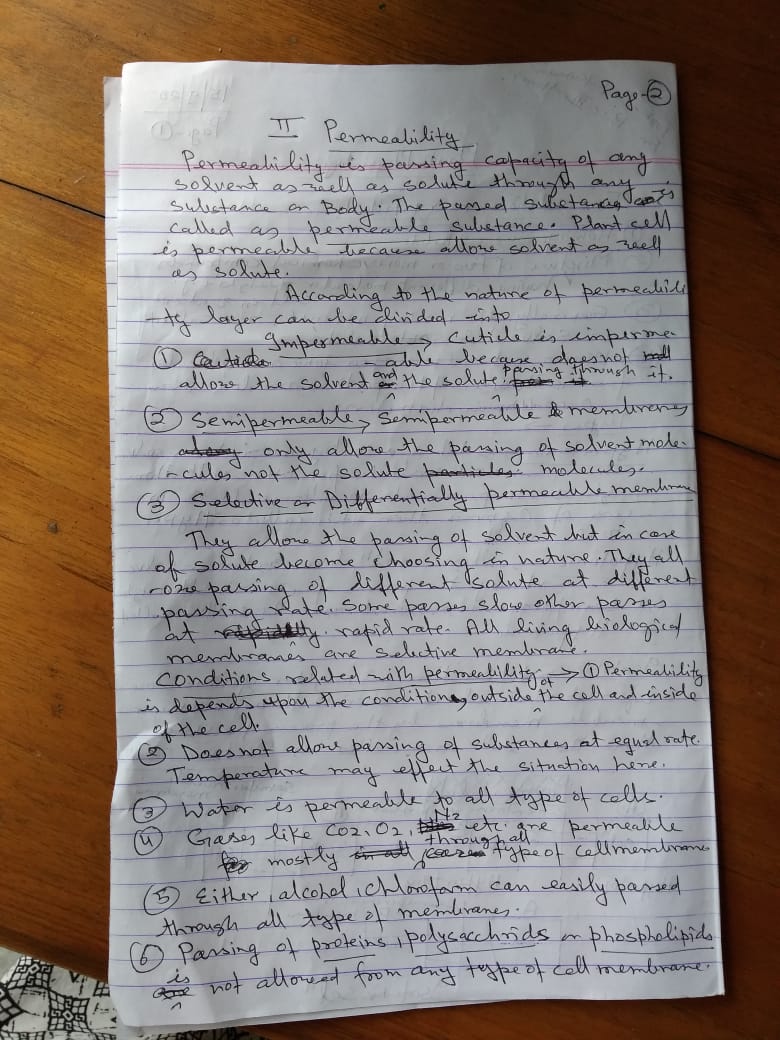 Page-2
II Permeability
Permeability is passing capacity of any
solvent as well as solute through any
substance or Body. The passed substance is
called as permeable substance. Plant cell
is permeable because allow solvent as well
as solute.
According to the nature of permeabili
-ty layer can be divided into
① Impermeable → Cuticle is imperme-
-able because does not
allow the solvent and the solute passing through it.
② Semipermeable, Semipermeable membranes
only allow the passing of solvent mole-
-cules not the solute molecules.
③ Selective or Differentially permeable membrane
They allow the passing of solvent but in case
of solute become choosing in nature. They all
-ow passing of different solute at different
passing rate. Some passes slow other passes
at rapid rate. All living biological
membranes are selective membrane.
Conditions related with permeability → ① Permeability
is depends upon the condition, outside of the cell and inside
of the cell.
② Does not allow passing of substances at equal rate.
Temperature may effect the situation here.
③ Water is permeable to all type of cells.
④ Gases like CO2, O2, N2 etc. are permeable
mostly through all type of cell membrane
⑤ Either, alcohol, chloroform can easily passed
through all type of membranes.
⑥ Passing of proteins, polysacchrids or phospholipids
is not allowed from any type of cell membrane.